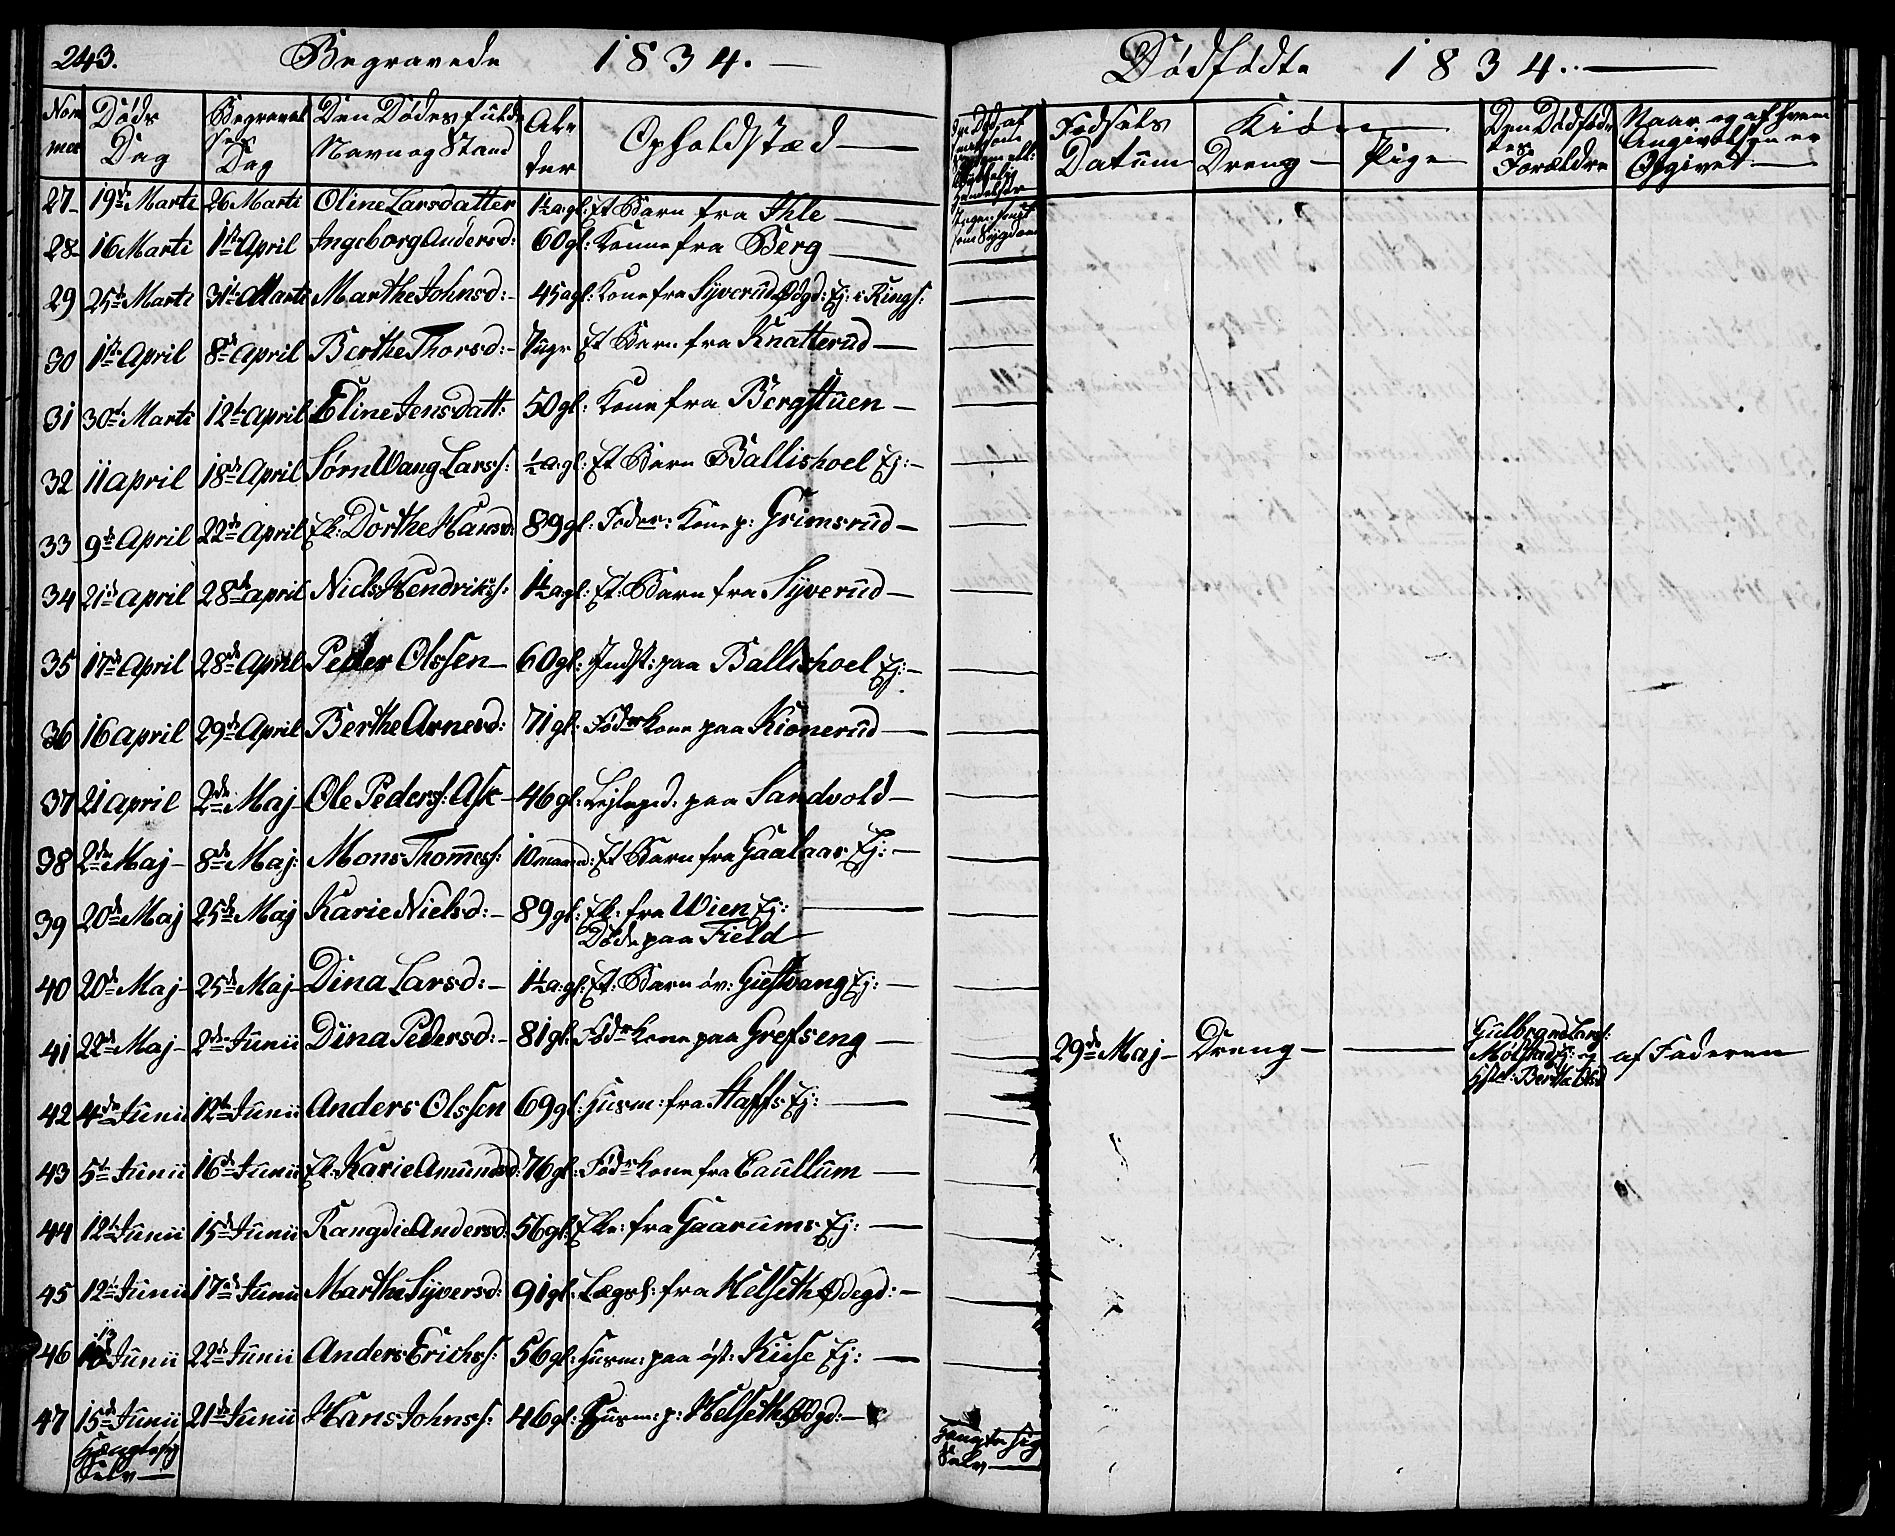 243. Begravede 1834. —
Nom mer | Døds Dag | Begravel ses Dag | Den Dødes fulde Navn og Stand | Al- der | Opholdstæd —
27 19de Marti 26 Marti Oline Larsdatter 1½ a: gl: Et Barn fra Ihle —
28 16 Marti 1ste April Ingeborg Andersd: 60 gl: Konne fra Berg —
29 25de Marti 31te Marti Marthe Johnsd: – 45 a gl: Kone fra Syverud Ødgd: Ej: i Rings:
30 1ste April 8de April Berthe Thorsd: – 7 uger Et Barn fra Knatterud —
31 30te Marti 12te April Eline Jensdatt: 50 gl: Kone fra Bergstuen —
32 11 april 18de April Sørn Wang Larss: ½ a: gl: Et Barn Ballishoel Ej: –
33 9de April 22de April Ek: Dorthe Hansd: 89 gl: Føder: Kone p: Grimsrud —
34 21de april 28de april Niels Hendrikss: 1½ a: gl: Et: Barn fra Syverud —
35 17de April 28de April Peder Olssen — 60 gl: Indst: paa Ballishoel Ej: –
36 16 april 29de April Berthe Arnesd: 71 gl: Føder Kone paa Kionerud —
37 21 april 2de Maj Ole Peders: Ask – 46 gl: paa Sandvold —
38 2den Maj – 8de Maj: Mons Thomess: 10 maaned: Et Barn fra Gaalaas Ej: —
39 20de Maj 25de Maj Karie Nielsd: – 89 gl: Ek: fra Wien Ej: —
Døde paa Field
40 20de Maj – 25de Maj – Dina Larsd: – 1½ a: gl: Et: Barn öv: Giestvang Ej: —
41 22de Maj – 2den Junii Dina Pedersd: – 81 gl: Föder Kone paa Grefseng —
42 4de Junii 12te Junii Anders Olssen 69 gl: Husm: fra Staffs Ej: —
43 5te Junii 16de Junii Ek: Karie Amundsd: 76 gl: Föder Kone fra Caullum —
44 12te Junii 15de Junii Rangdie Andersd: 56 gl: Eke: fra Gaarums Ej: —
45 12te Junii 17de Junii Marthe Syversd: 91 gl: Lægsl: fra Helseth Ødegd: –
46 13 Junii 22de Junii Anders Erichss: 56 gl: Husm: paa öst: Kiise Ej: —
47 15de Junii 21de Junii Hans Johnss: 46 gl: Husm: p: Helseth Ødgd: –
Hængte sig
Selv —
Hængte sig
Selv —
Dødfødte 1834. —
Fødsels Datum | Kiøn Dreng – Pige – | Den Dødfød- tes Forældre | Naar og af hvem Angivelsen er Opgivet —
29de Maj – Dreng – — Gulbrand Larss:
Mølstad Ej: og af Faderen